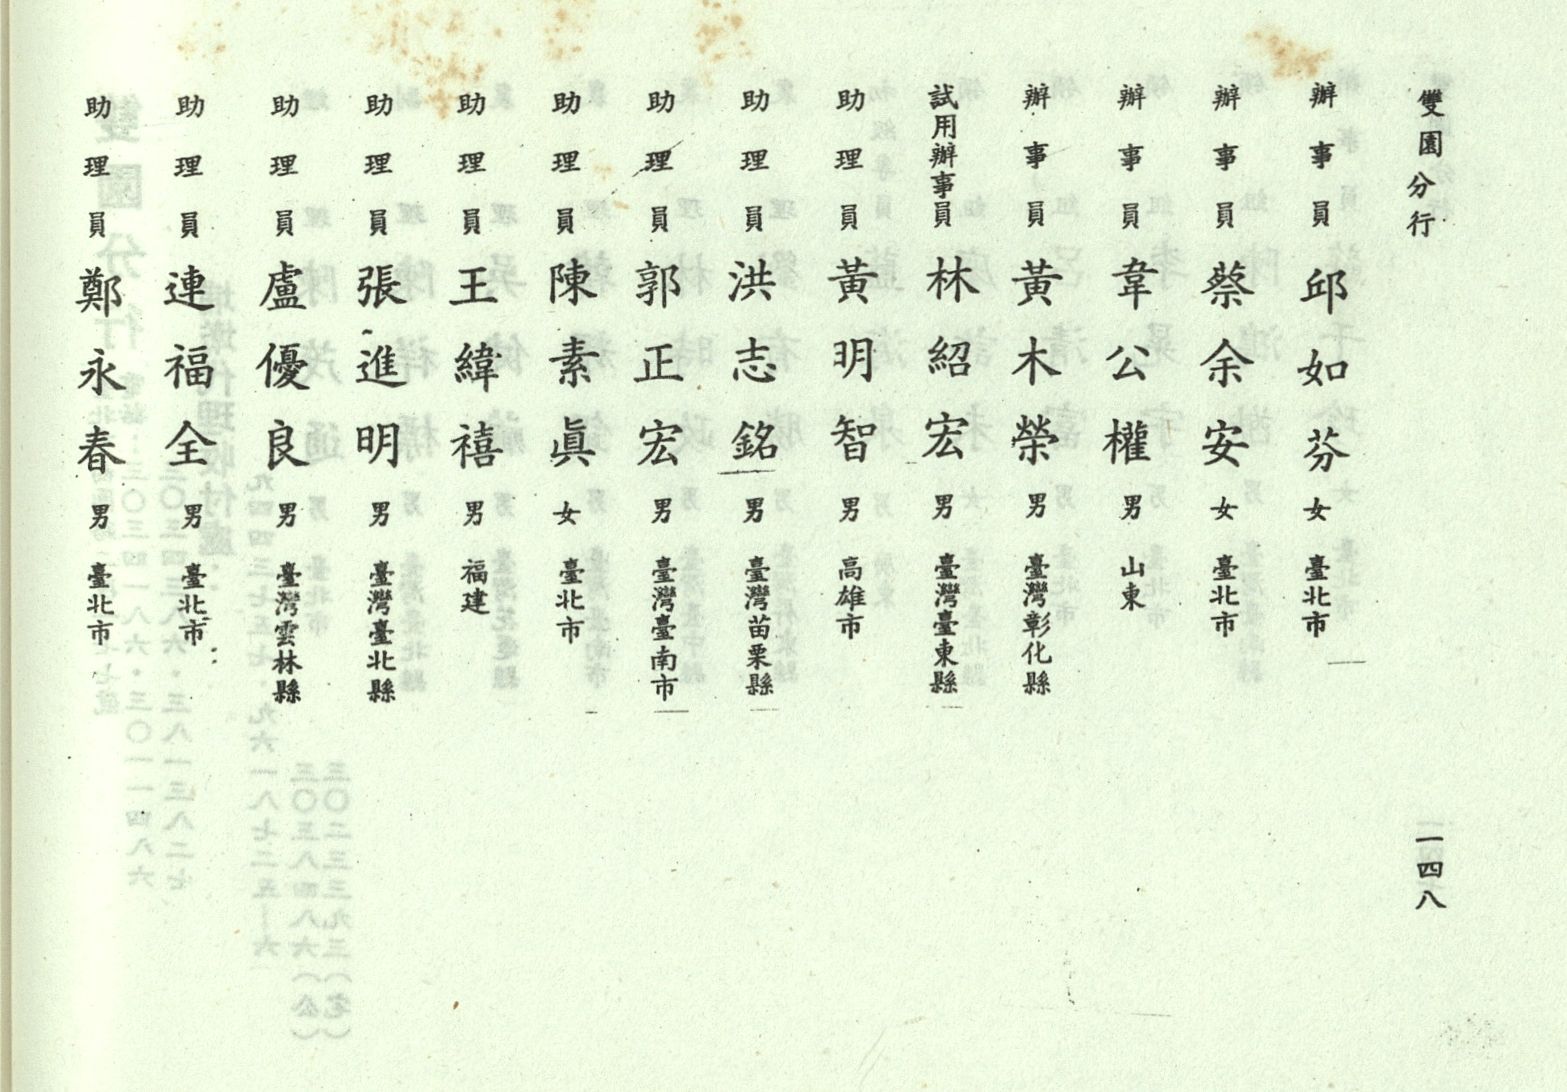 雙園分行
一四八
辦事員 邱如芬 女 臺北市
辦事員 蔡余安 女 臺北市
辦事員 韋公權 男 山東
辦事員 黃木榮 男 臺灣彰化縣
試用辦事員 林紹宏 男 臺灣臺東縣
助理員 黃明智 男 高雄市
助理員 洪志銘 男 臺灣苗栗縣
助理員 郭正宏 男 臺灣臺南市
助理員 陳素眞 女 臺北市
助理員 王緯禧 男 福建
助理員 張進明 男 臺灣臺北縣
助理員 盧優良 男 臺灣雲林縣
助理員 連福全 男 臺北市
助理員 鄭永春 男 臺北市